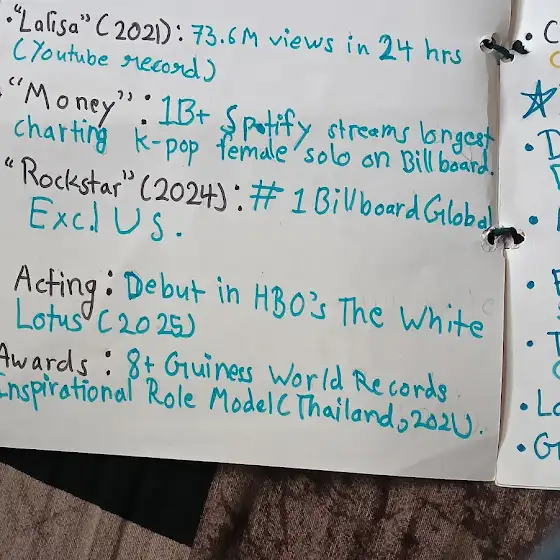 •"Lalisa" (2021): 73.6M views in 24 hrs
(Youtube record)
"Money": 1B+ Spotify streams longest
charting k-pop female solo on Billboard.
"Rockstar" (2024): # 1 Billboard Global
Excl US.
Acting: Debut in HBO's The White
Lotus (2025)
Awards: 8+ Guiness World Records
Inspirational Role Model (Thailand,